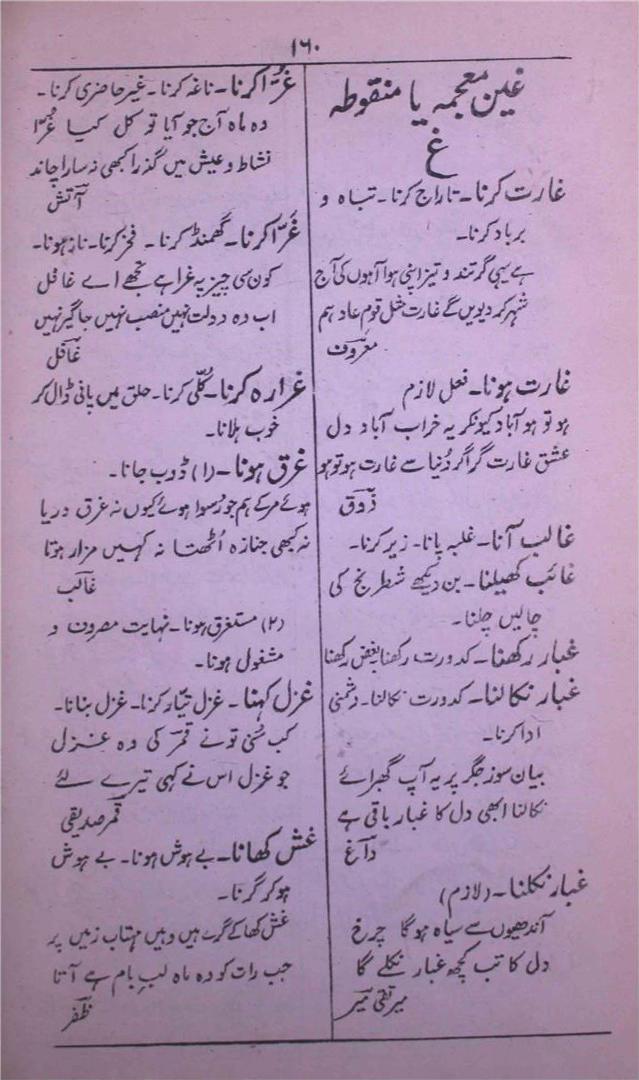 ۱۶۰
غین معجمہ یا منقوطہ
غ
غارت کرنا۔ تاراج کرنا۔ تباہ و
برباد کرنا۔
ہے یہی گر تند و تیز اپنی ہوا آہوں کی آج
شہر کر دیویں گے غارت مثل قوم عاد ہم
معروف
غارت ہونا۔ فعل لازم
ہو تو ہو آباد کیونکر یہ خراب آباد دل
عشق غارت گر اگر دُنیا سے غارت ہو تو ہو
ذوق
غالب آنا۔ غلبہ پانا۔ زیر کرنا۔
غائب کھیلنا۔ بن دیکھے شطرنج کی
چالیں چلنا۔
غبار رکھنا۔ کدورت رکھنا بغض رکھنا
غبار نکالنا۔ کدورت نکالنا۔ دشمنی
ادا کرنا۔
بیان سوز جگر پر یہ آپ گھبرائے
نکالنا ابھی دل کا غبار باقی ہے
داغ
غبار نکلنا۔ (لازم)
آندھیوں سے سیاہ ہوگا چرخ
دل کا تب کچھ غبار نکلے گا
میر تقی میر
غرّا کرنا۔ ناغہ کرنا۔ غیر حاضری کرنا۔
وہ ماہ آج جو آیا تو کل کیا غُرّا
نشاط و عیش میں گذرا کبھی نہ سارا چاند
آتش
غُرّا کرنا۔ گھمنڈ کرنا۔ فخر کرنا۔ ناز ہونا۔
کون سی چیز پہ غرا ہے تجھے اے غافل
اب وہ دولت نہیں منصب نہیں جاگیر نہیں
غافل
غرارہ کرنا۔ کُلّی کرنا۔ حلق میں پانی ڈال کر
خوب ہلانا۔
غرق ہونا۔ (۱) ڈوب جانا۔
ہوئے مر کے ہم جو رُسوا ہوئے کیوں نہ غرق دریا
نہ کبھی جنازہ اُٹھتا نہ کہیں مزار ہوتا
غالب
(۲) مستغرق ہونا۔ نہایت مصروف و
مشغول ہونا۔
غزل کہنا۔ غزل تیّار کرنا۔ غزل بنانا۔
کب سُنی تو نے قمر کی وہ غزل
جو غزل اس نے کہی تیرے لئے
قمر صدیقی
غش کھانا۔ بے ہوش ہونا۔ بے ہوش
ہو کر گرنا۔
غش کھا کے گرے ہیں وہیں مہتاب زمیں پر
جب رات کو وہ ماہ لبِ بام ہے آتا
ظفر